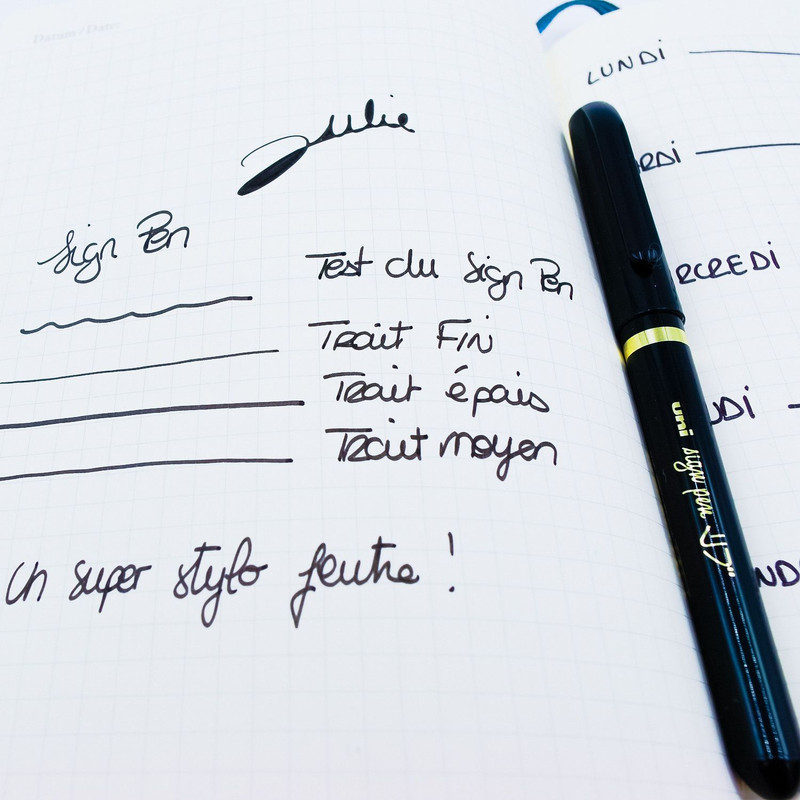 Datum / Date:
Julie
Sign Pen
Test du Sign Pen
Trait FiN
Trait épais
Trait moyen
Un super stylo feutre !
LUNDi
RDi
RCREDi
UDi
ND
uni sign pen